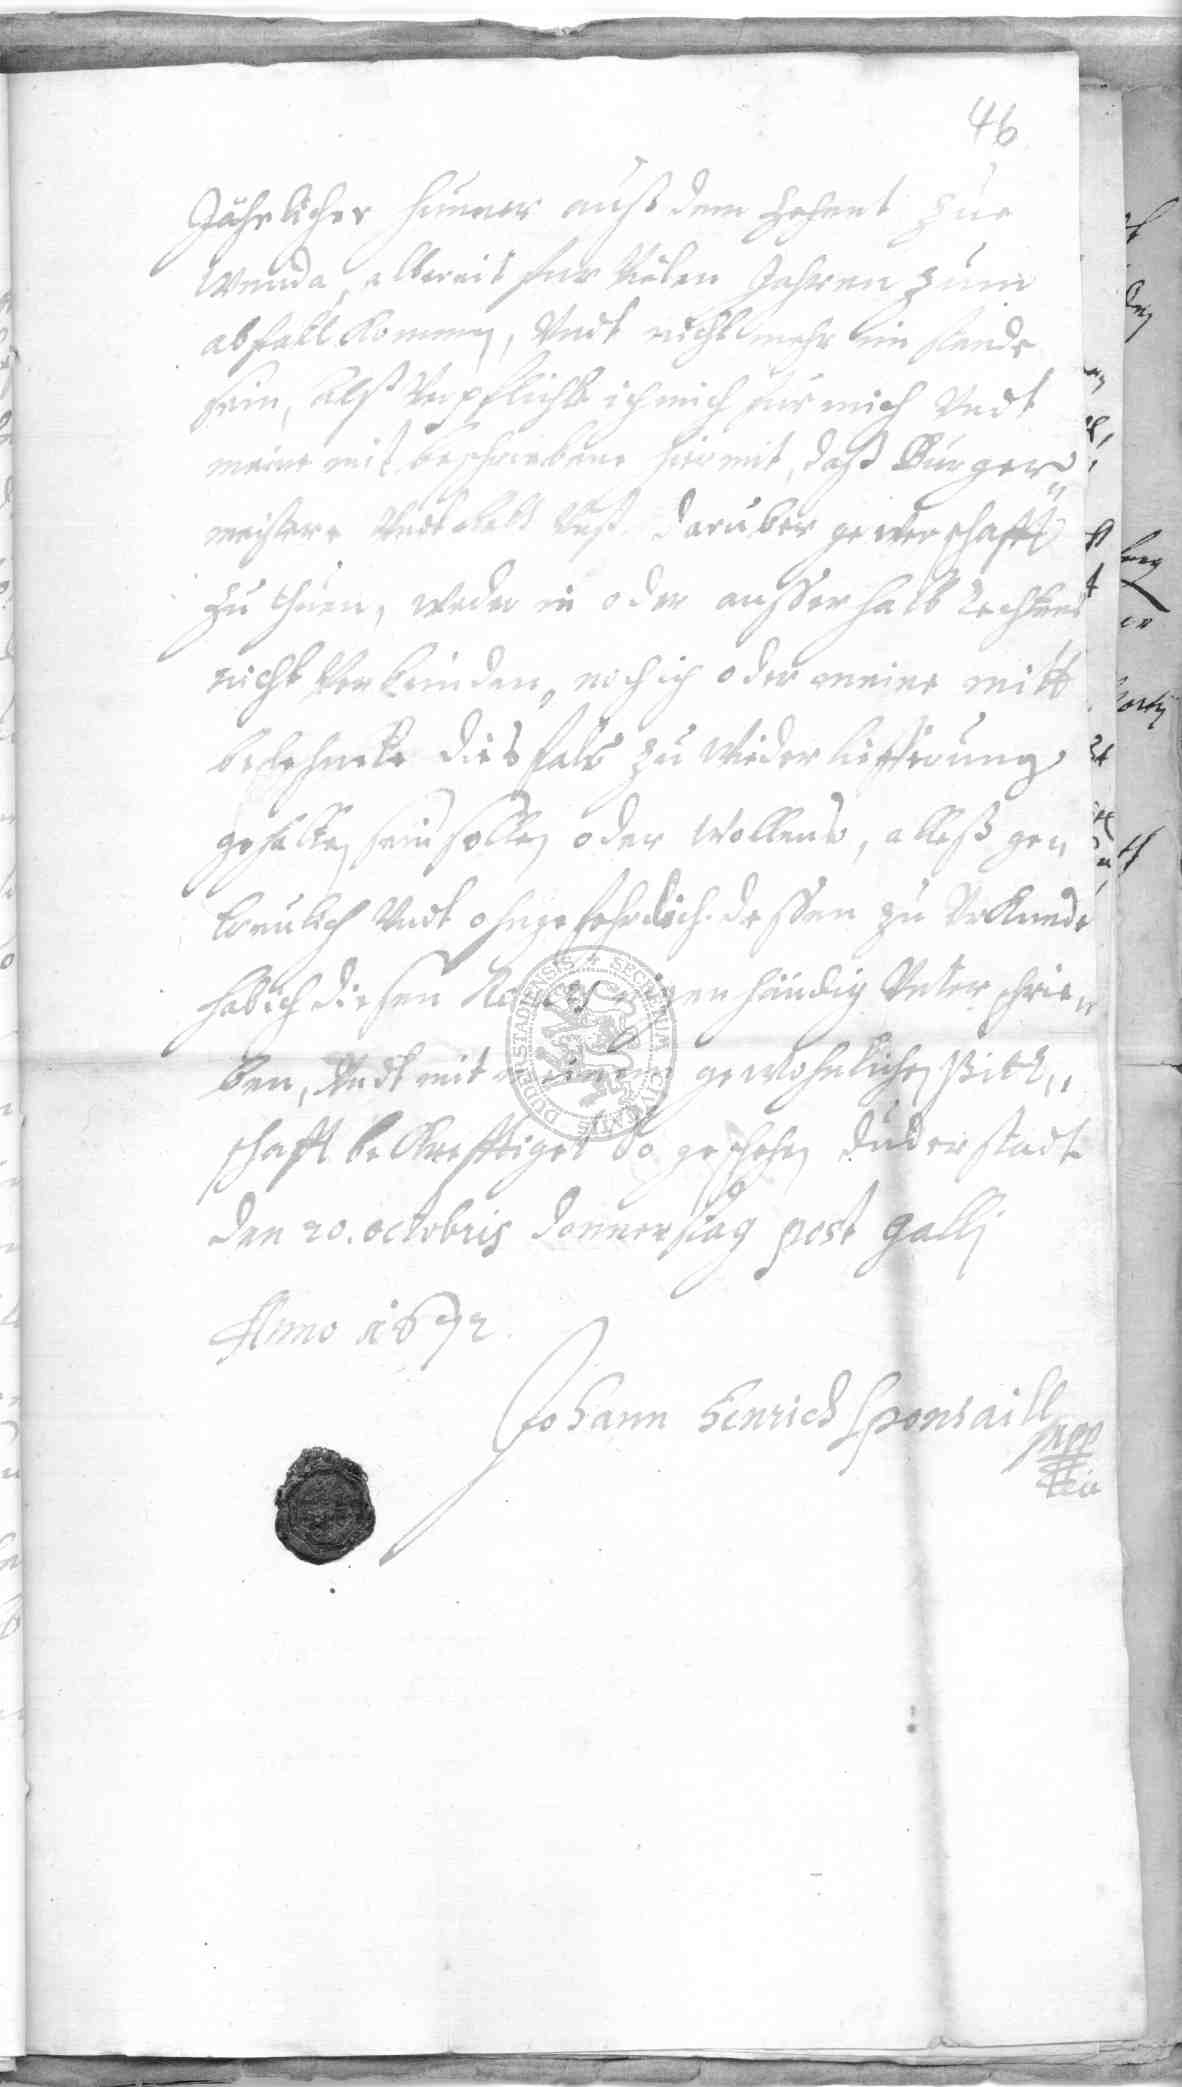 46
Jährlicher huner auß dem Zehent zue
Wenda, albereit fur Vielen Jahren zum
abfall Kommen, Undt nicht mehr im stande
sein, Alß Verpflichte ich mich fur mich Undt
meine mit beschriebene hiermit, daß Burger„
meistere Undt Raht Unß daruber gewerschafft
zu thuen, weder in oder ausserhalb Rechtens
nicht Verbunden, noch ich oder meine mitt
belehnete dießfals zu Wiederliefferung
gehalten sein sollen oder Wollen, alleß ge„
treulich Undt ohngefehrlich. dessen zu Urkunde
hab ich diesen eigenhändig Unterschrie„
ben, Undt mit meinem gewohnlichen Pitt„
schafft beKrefftiget So geschehen Duderstadt
den 20. octobris Donnerstag post Galli
Anno 1672.
Johann Henrich Sponsaill
mpp
SECRETUM CIVITATIS DUDERSTADIENSIS